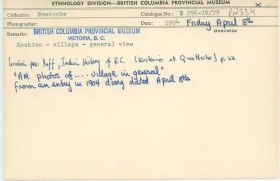 ETHNOLOGY DIVISION—BRITISH COLUMBIA PROVINCIAL MUSEUM
Collection: Newcombe Catalogue No.: E 296-14/75 PN334
Photographer: Date: 1904 Friday April 8th
Remarks: BRITISH COLUMBIA PROVINCIAL MUSEUM
VICTORIA, B.C.
Koskimo - village - general view
Duff, Indian History of B.C. (Koskimo at Quattishe) p. 22
"AM photos of ... village in general"
from an entry in 1904 diary dated April 8th